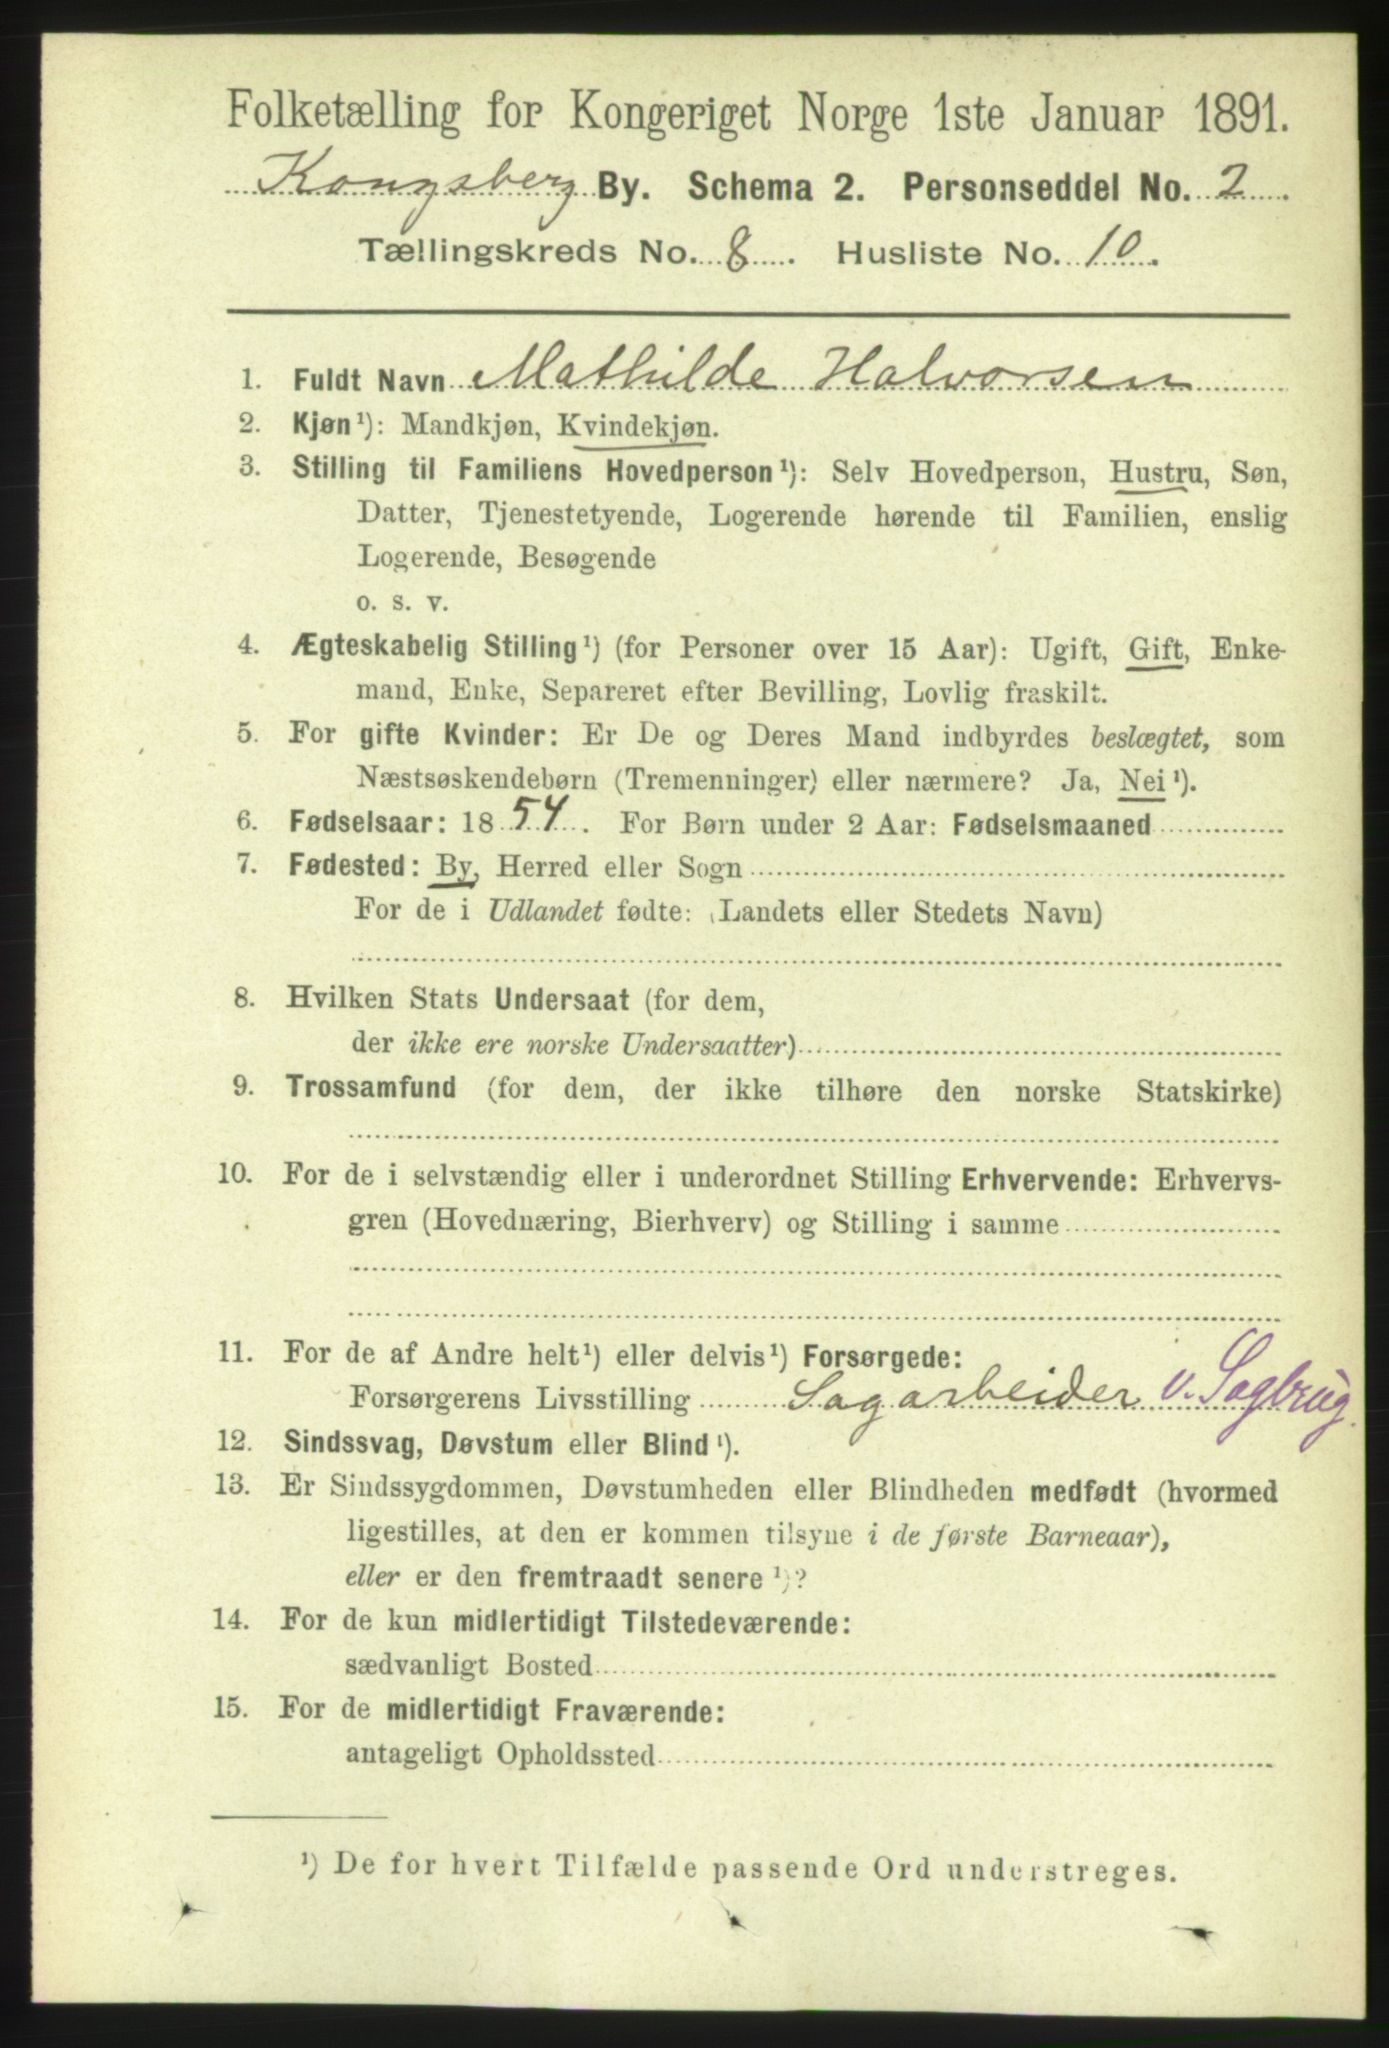 Folketælling for Kongeriget Norge 1ste Januar 1891.
Kongsberg By. Schema 2. Personseddel No. 2
Tællingskreds No. 8. Husliste No. 10.
1. Fuldt Navn Mathilde Halvorsen
2. Kjøn¹): Mandkjøn, Kvindekjøn.
3. Stilling til Familiens Hovedperson¹): Selv Hovedperson, Hustru, Søn,
Datter, Tjenestetyende, Logerende hørende til Familien, enslig
Logerende, Besøgende
o. s. v.
4. Ægteskabelig Stilling¹) (for Personer over 15 Aar): Ugift, Gift, Enke-
mand, Enke, Separeret efter Bevilling, Lovlig fraskilt.
5. For gifte Kvinder: Er De og Deres Mand indbyrdes beslægtet, som
Næstsøskendebørn (Tremenninger) eller nærmere? Ja, Nei¹).
6. Fødselsaar: 1854. For Børn under 2 Aar: Fødselsmaaned
7. Fødested: By, Herred eller Sogn
For de i Udlandet fødte: (Landets eller Stedets Navn)
8. Hvilken Stats Undersaat (for dem,
der ikke ere norske Undersaatter)
9. Trossamfund (for dem, der ikke tilhøre den norske Statskirke)
10. For de i selvstændig eller i underordnet Stilling Erhvervende: Erhvervs-
gren (Hovednæring, Bierhverv) og Stilling i samme
11. For de af Andre helt¹) eller delvis¹) Forsørgede:
Forsørgerens Livsstilling Sagarbeider v. Sagbrug.
12. Sindssvag, Døvstum eller Blind¹).
13. Er Sindssygdommen, Døvstumheden eller Blindheden medfødt (hvormed
ligestilles, at den er kommen tilsyne i de første Barneaar),
eller er den fremtraadt senere¹)?
14. For de kun midlertidigt Tilstedeværende:
sædvanligt Bosted
15. For de midlertidigt Fraværende:
antageligt Opholdssted
¹) De for hvert Tilfælde passende Ord understreges.